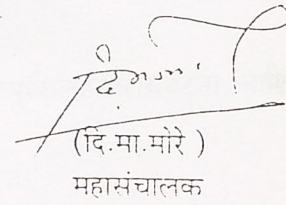 (दि.मा.मोरे )
महासंचालक